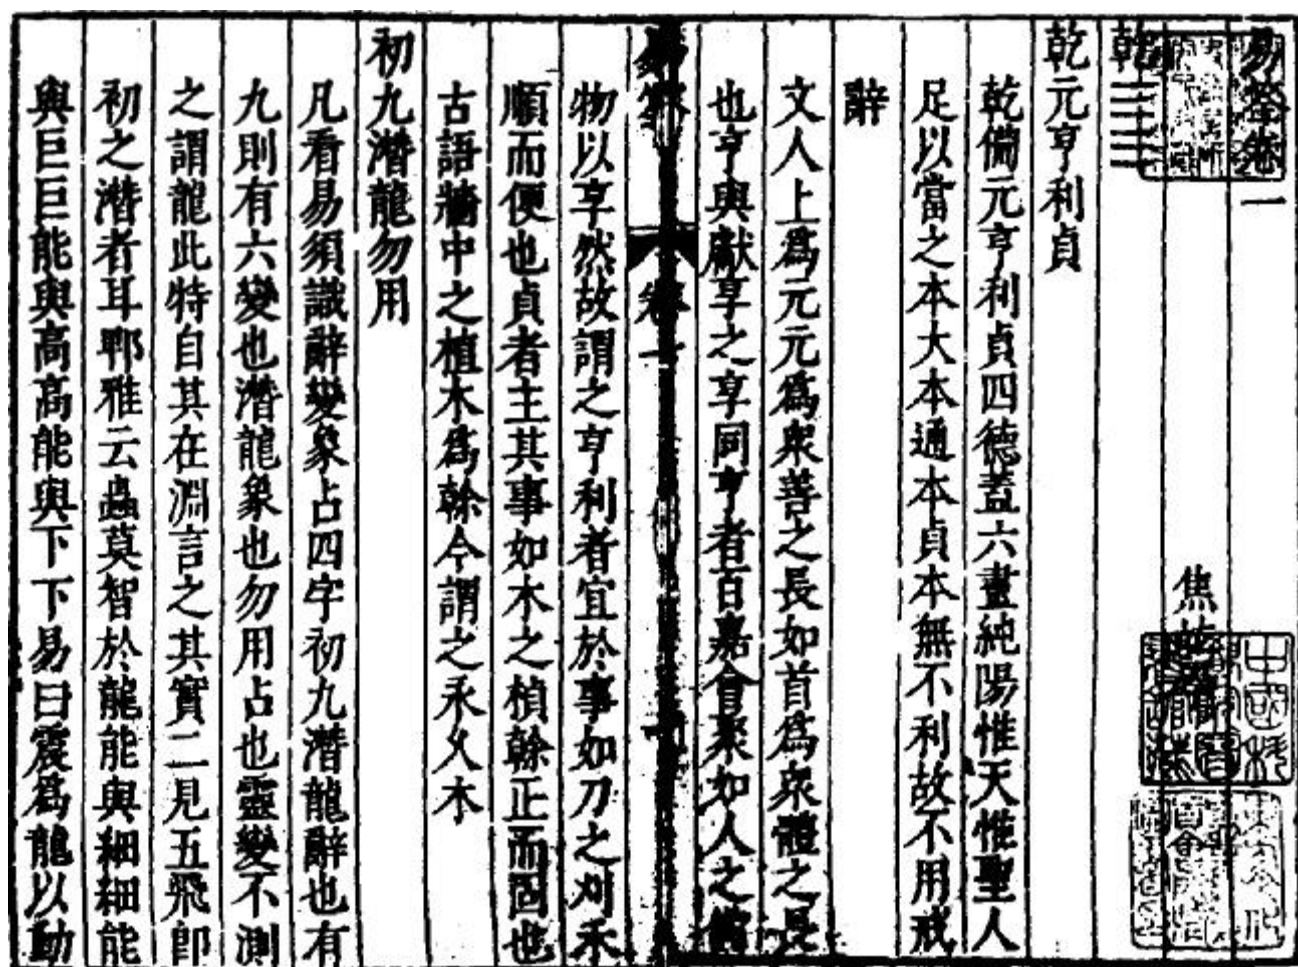 易筌卷一
焦
乾
乾元亨利貞
乾備元亨利貞四德蓋六畫純陽惟天惟聖人
足以當之本大本通本貞本無不利故不用戒
辭
文人上爲元元爲衆善之長如首爲衆體之長
也亨與獻享之享同亨者百嘉會聚如人之備
易筌 卷一
物以享然故謂之亨利者宜於事如刀之刈禾
順而便也貞者主其事如木之楨榦正而固也
古語牆中之植木爲榦今謂之永乂木
初九潛龍勿用
凡看易須識辭變象占四字初九潛龍辭也有
九則有六變也潛龍象也勿用占也靈變不測
之謂龍此特自其在淵言之其實二見五飛即
初之潛者耳鄆雅云蟲莫智於龍龍能與細細能
與巨巨能與高高能與下下易曰震爲龍以動